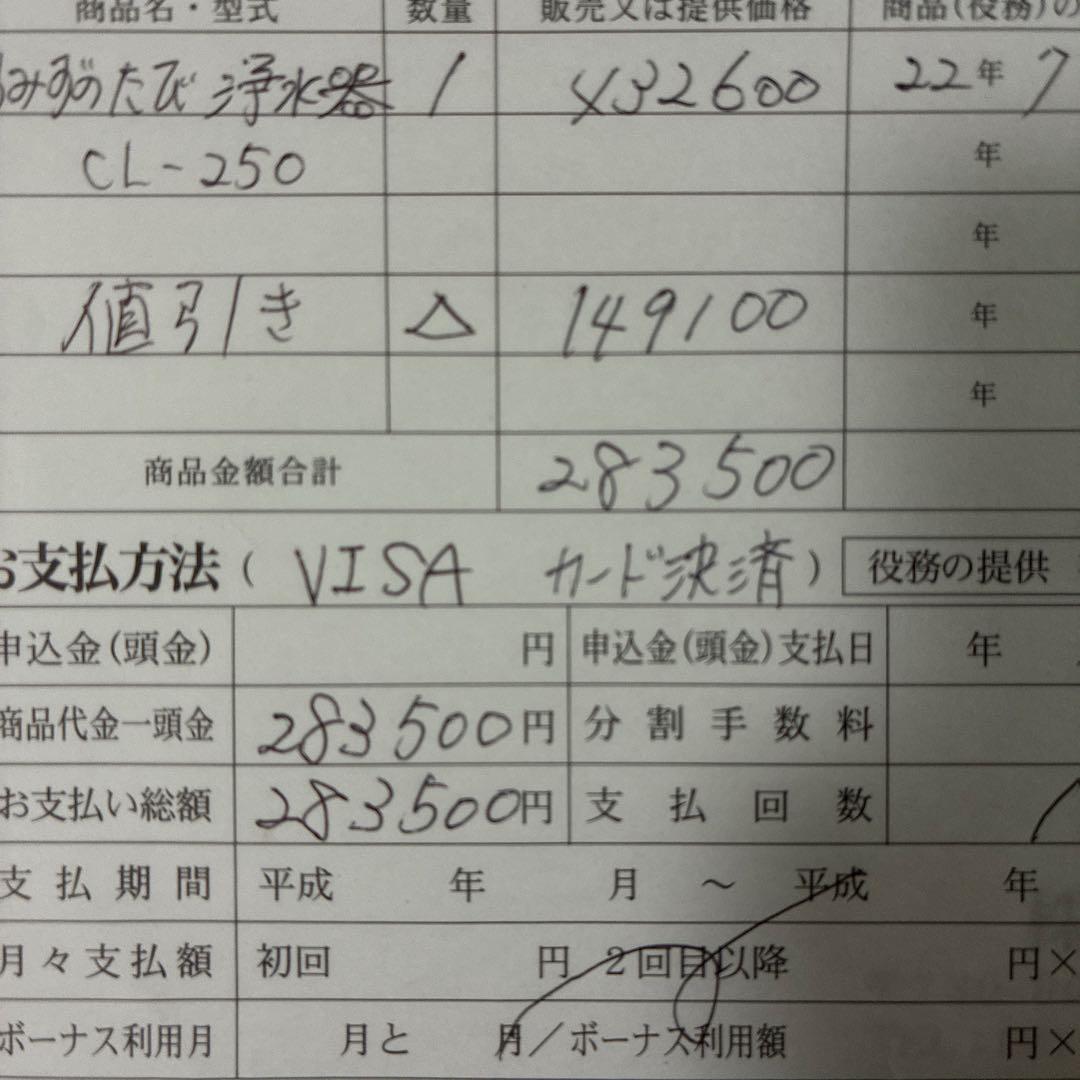 商品名・型式 数量 販売又は提供価格 商品(役務)の
みずのたび 浄水器 1 ¥432600 22年 7
CL-250 年
年
値引き △ 149100 年
年
商品金額合計 283500
お支払方法 ( VISA カード決済 ) 役務の提供
申込金(頭金) 円 申込金(頭金)支払日 年
商品代金ー頭金 283500円 分割手数料
お支払い総額 283500円 支払回数
支払期間 平成 年 月 ～ 平成 年
月々支払額 初回 円 2回目以降 円×
ボーナス利用月 月と 月／ボーナス利用額 円×